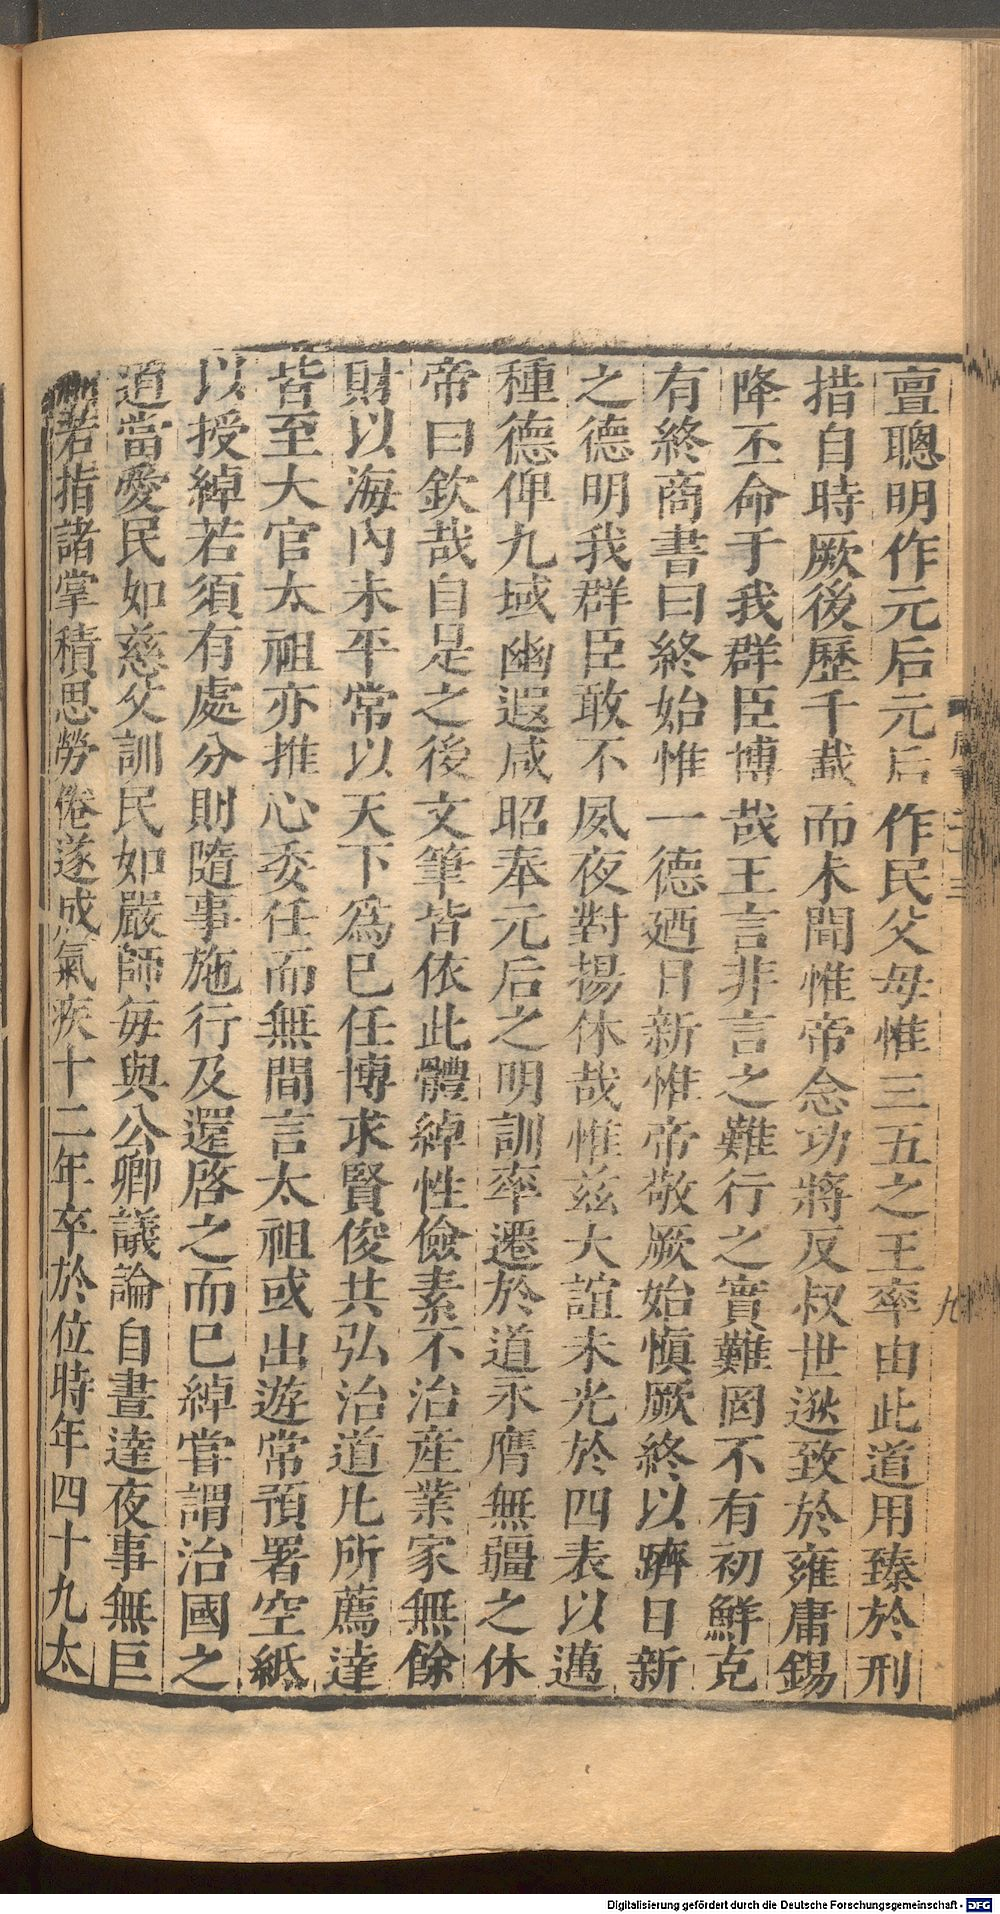 亶聰明作元后元后作民父母惟三五之王率由此道用臻於刑
措自時厥後歷千載而未聞惟帝念功將反叔世逖致於雍庸錫
降丕命于我群臣博哉王言非言之難行之實難罔不有初鮮克
有終商書曰終始惟一德廼日新惟帝敬厥始慎厥終以躋日新
之德明我群臣敢不夙夜對揚休哉惟茲大誼未光於四表以邁
種德俾九域幽遐咸昭奉元后之明訓率遷於道永膺無疆之休
帝曰欽哉自是之後文筆皆依此體綽性儉素不治產業家無餘
財以海內未平常以天下爲己任博求賢俊共弘治道凡所薦達
皆至大官太祖亦推心委任而無間言太祖或出遊常預署空紙
以授綽若須有處分則隨事施行及還啓之而已綽嘗謂治國之
道當愛民如慈父訓民如嚴師每與公卿議論自晝達夜事無巨
細若指諸掌積思勞倦遂成氣疾十二年卒於位時年四十九太
九
Digitalisierung gefördert durch die Deutsche Forschungsgemeinschaft - DFG